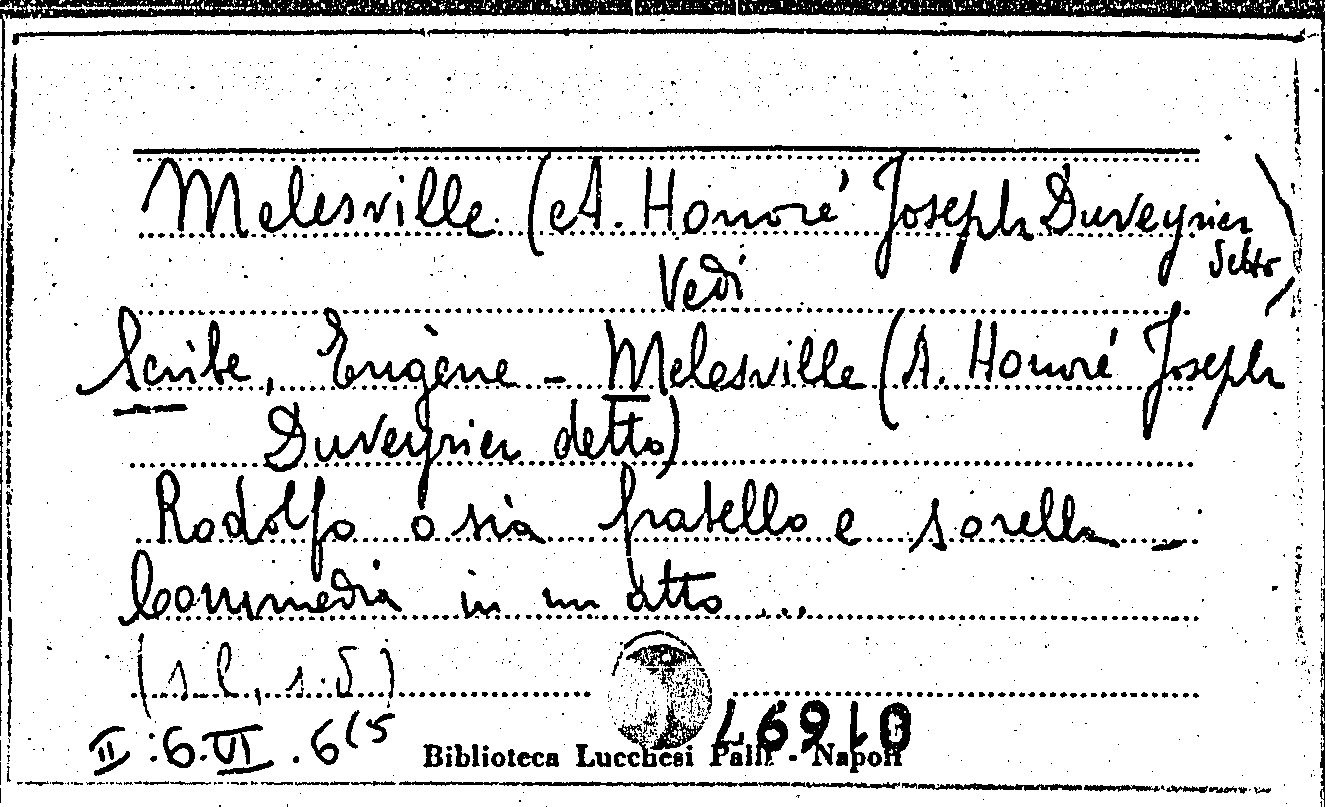 Melesville (A. Honoré Joseph Duveyrier detto)
Vedi
Scribe, Eugène - Melesville (A. Honoré Joseph
Duveyrier detto)
Rodolfo o sia fratello e sorella -
Commedia in un atto ...
(s.l., s.d)
II.6.VI.6(5
Biblioteca Lucchesi Palli - Napoli